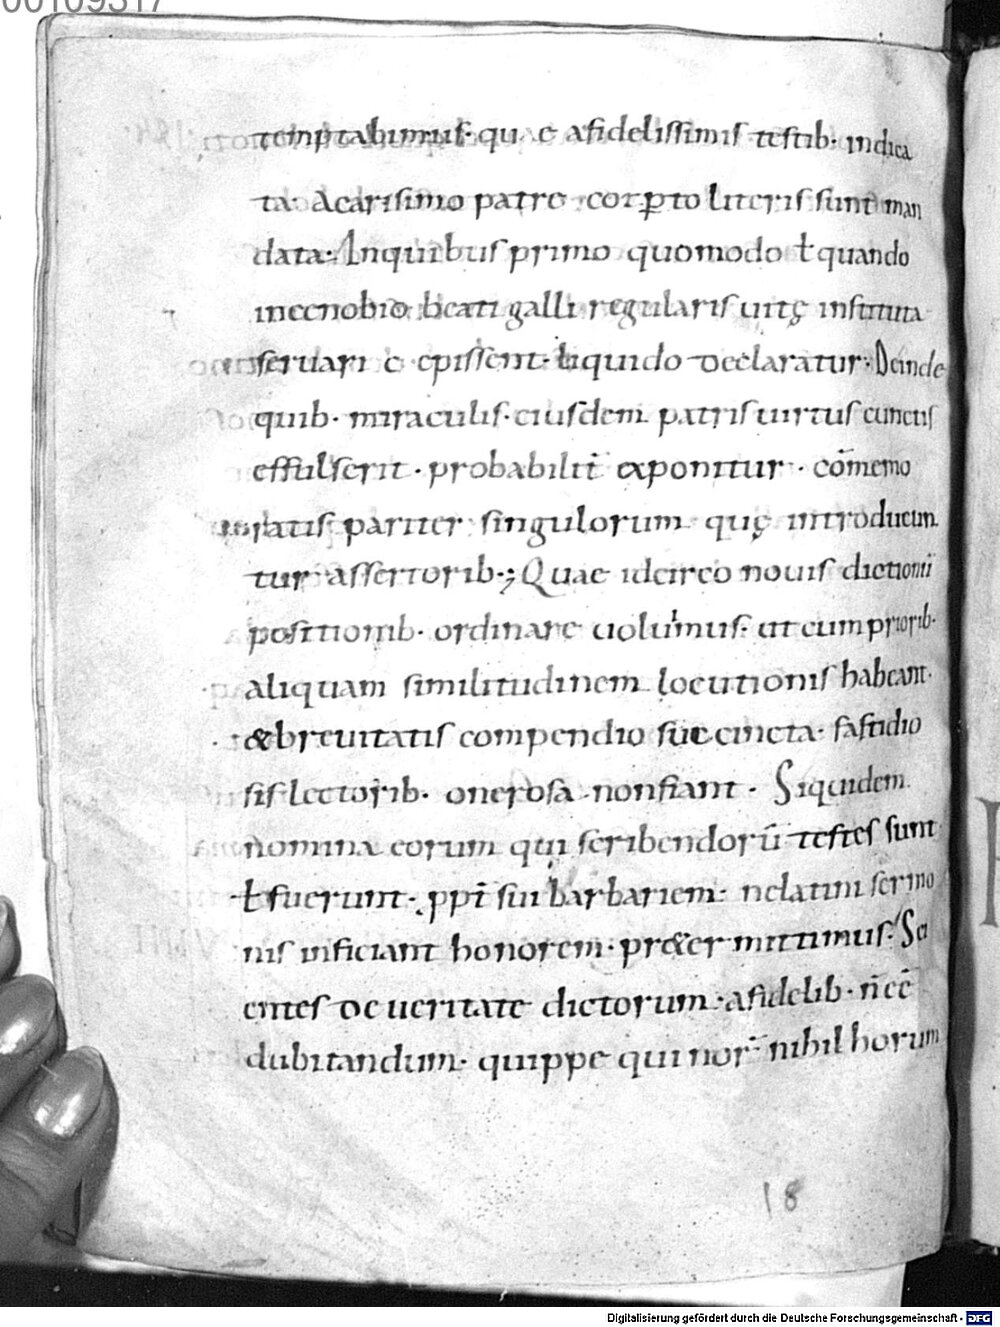 00109317
temptabimus· quae afidelissimis testib· indica
ta· Acarisimo patre corꝑto literis sunt man
data· Inquibus primo quomodo ł quando
inecnobio beati galli regularis uitę instituta
seruari cepissent· liquido declaratur· Deinde
quib· miraculis· eiusdem patris uirtus cunctis
effulserit · probabilit̄ exponitur · cōmemo
ratis pariter singulorum quę introducun
tur assertorib·; Quae idcirco nouis dictionū
positionib· ordinare uoluimus· ut cum priorib·
aliquam similitudinem locutionis habeant·
&breuitatis compendio succincta· fastidio
sis lectorib· onerosa nonfiant · Siquidem
nomina eorum qui scribendorū testes sunt
ł fuerunt· ꝓpt̄ sui barbariem· nelatini sermo
nis inficiant honorem· pr&er mittimus· Sci
entes deueritate dictorum· afidelib· n̄ eē
dubitandum· quippe qui nor̄ nihil horum
18
Digitalisierung gefördert durch die Deutsche Forschungsgemeinschaft - DFG